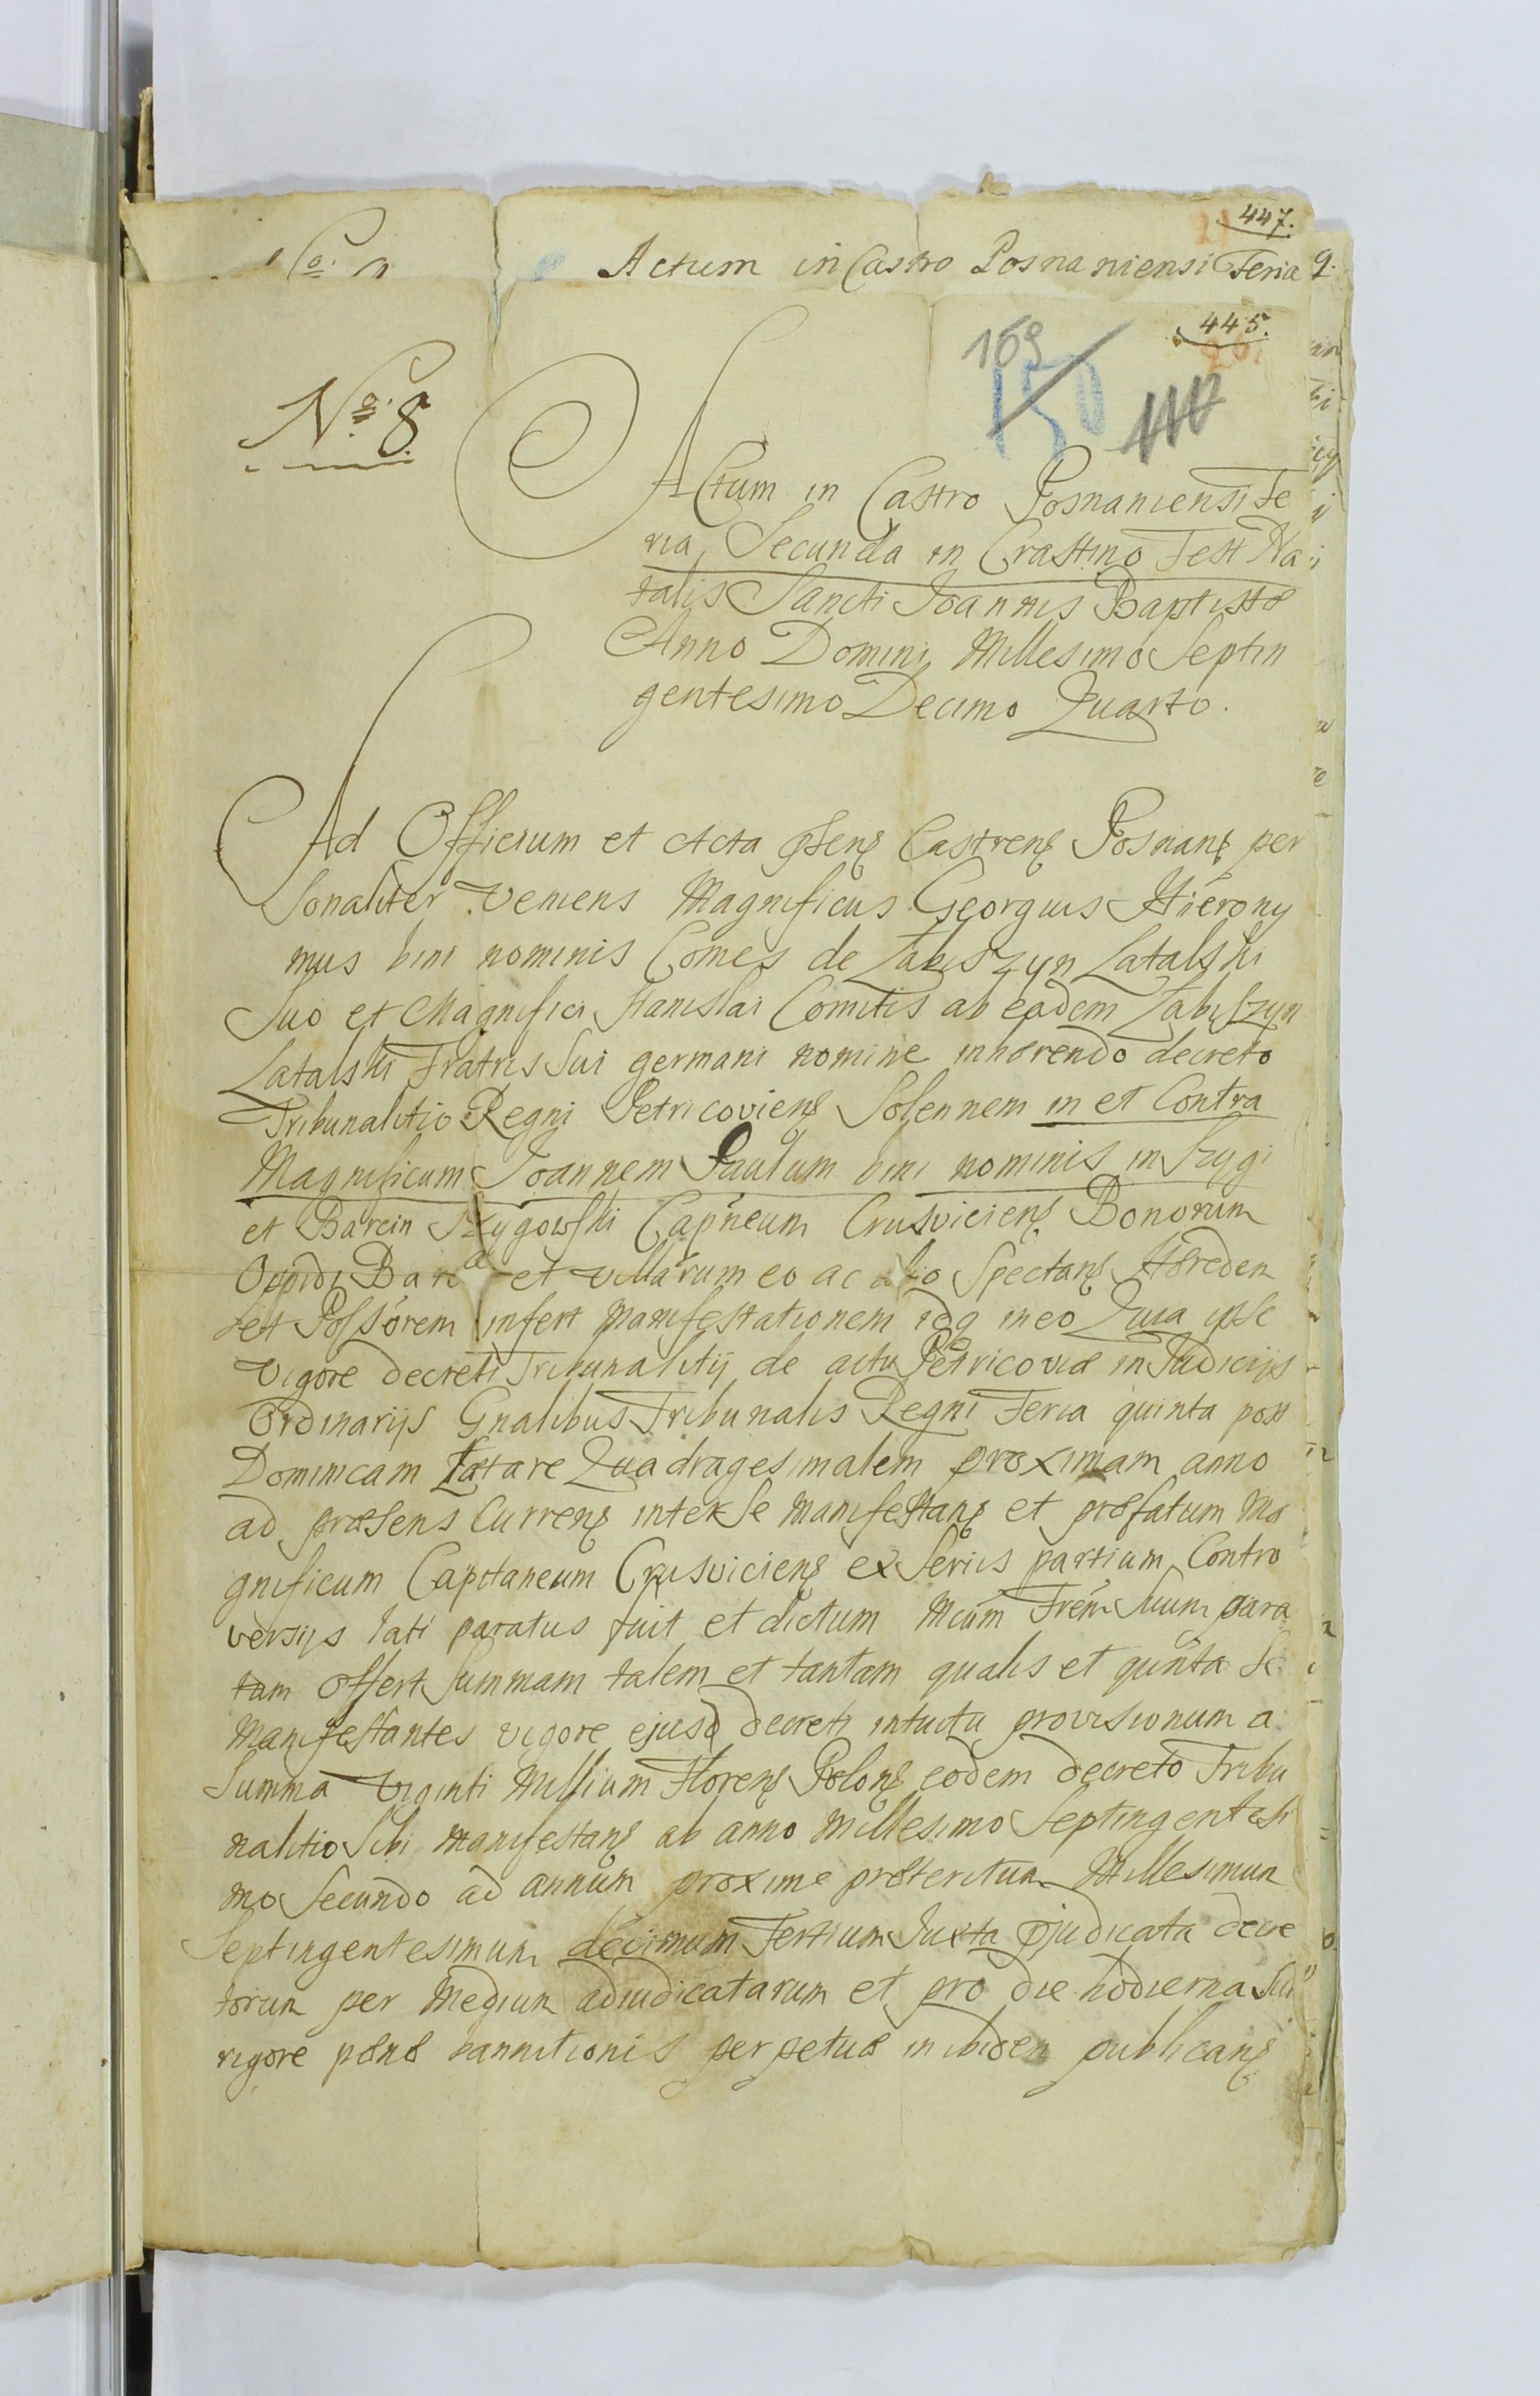 447.
Actum in Castro Posnaniensi Feria
445.
169
150
No. 8
Actum in Castro Posnaniensi Fe
ria Secunda in Crastino Fest Na
talis Sancti Joannis Baptistæ
Anno Domini Millesimo Septin
gentesimo Decimo Quarto.
Ad Officium et Acta pñsenę Castrenę Posnanę per
sonaliter veniens Magnificus Georgius Hierony
mus bini nominis Comes de Łabiszyn Latalski
suo et Magnifici Stanislai Comitis ab eadem Łabiszyn
Latalski Fratris sui germani nomine inhærendo decreto
Tribunalitio Regni Petricovienę Solennem in et Contra
Magnificum Joannem Paulum bini nominis in Szygi
et Barcin Szygowski Capñeum Crusvicienę Bonorum
Oppidi Barcin et villarum eo ac alio Spectanę Hæredem
et Possõrem infert manifestationem idq in eo Quia ipse
vigore decreti Tribunalitij de actu Petricoviæ in Judicijs
Ordinarijs Gñalibus Tribunalis Regni Feria quinta post
Dominicam Lætare Quadragesimalem proximam anno
ad præsens Currenę inter se manifestanę et præfatum Ma
gnificum Capitaneum Crusvicienę ex Serijs partium Contro
versijs lati paratus fuit et dictum Mcum Frem suum para
tum offert summam talem et tantam qualis et quñta Se
manifestantes vigore ejusd decreti intuitu provisionum a
Summa Viginti Millium Florenę Polonę eodem decreto Tribu
nalitio sibi manifestanę ab anno Millesimo Septingentesi
mo Secundo ad annum proxime præteritum Millesimum
Septingentesimum decimum Tertium Juxta pjudicata decre
torum per Medium adiudicatarum et pro die hodierna sub
rigore pænæ bannitionis perpetuæ inibidem publicanę